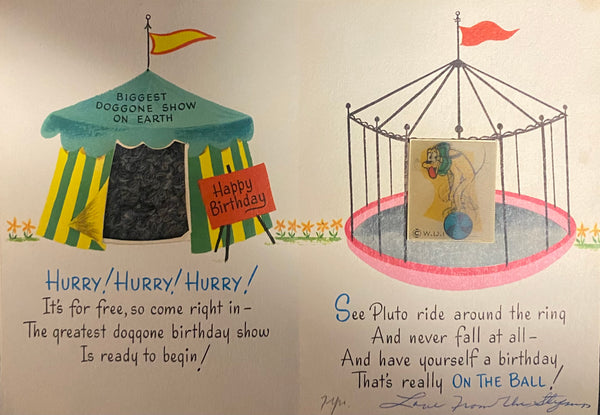 BIGGEST
DOGGONE SHOW
ON EARTH
Happy
Birthday
HURRY! HURRY! HURRY!
It's for free, so come right in—
The greatest doggone birthday show
Is ready to begin!
© W.D.P.
See Pluto ride around the ring
And never fall at all—
And have yourself a birthday
That's really ON THE BALL!
Love From The